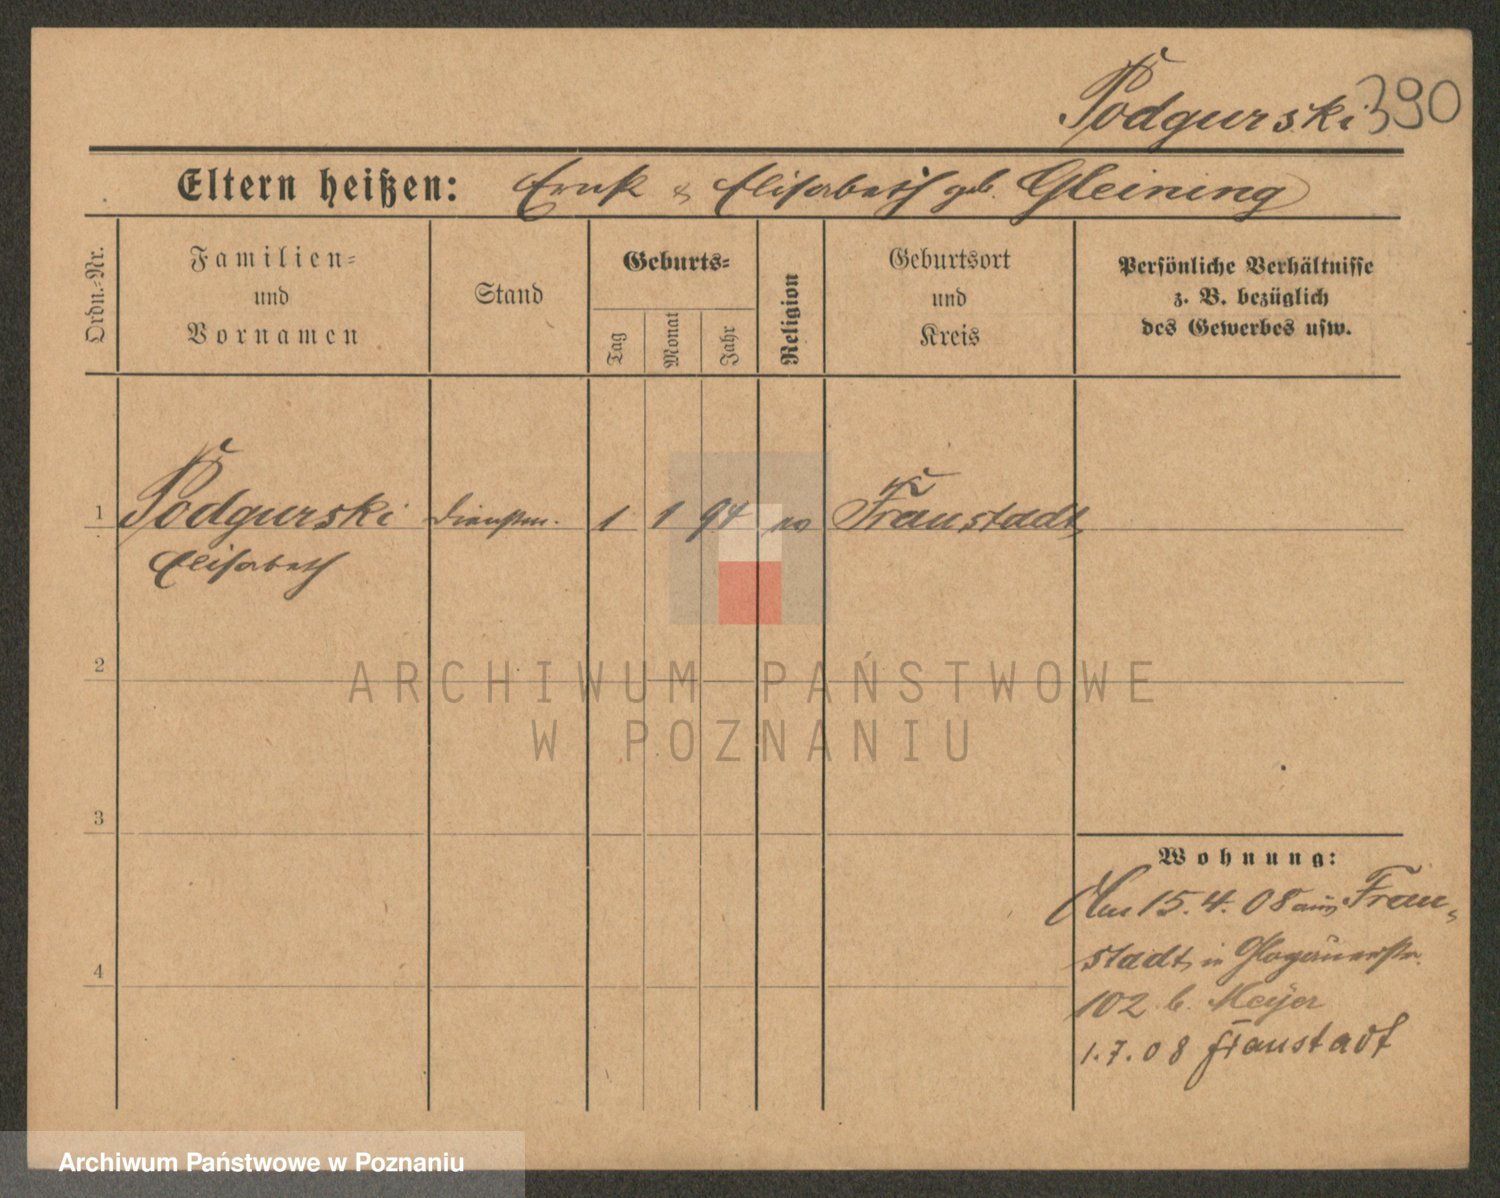 Podgurski 390
Eltern heißen: Ernst & Elisabeth geb. Gleining
Ordn.-Nr.
Familien- und Vornamen
Stand
Geburts-
Tag
Monat
Jahr
Religion
Geburtsort und Kreis
Persönliche Verhältnisse
z. B. bezüglich
des Gewerbes usw.
1 Podgurski 1 1 94 Fraustadt
Elisabeth
2
3
4
Wohnung:
Am 15.4.08 aus Frau-
stadt in Glogauerstr.
102 b. Meyer
1.7.08 Fraustadt
ARCHIWUM PAŃSTWOWE
W POZNANIU
Archiwum Państwowe w Poznaniu